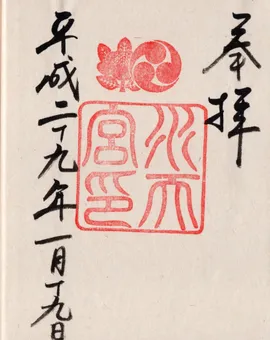 奉拝
水天宮印
平成二十九年一月十九日